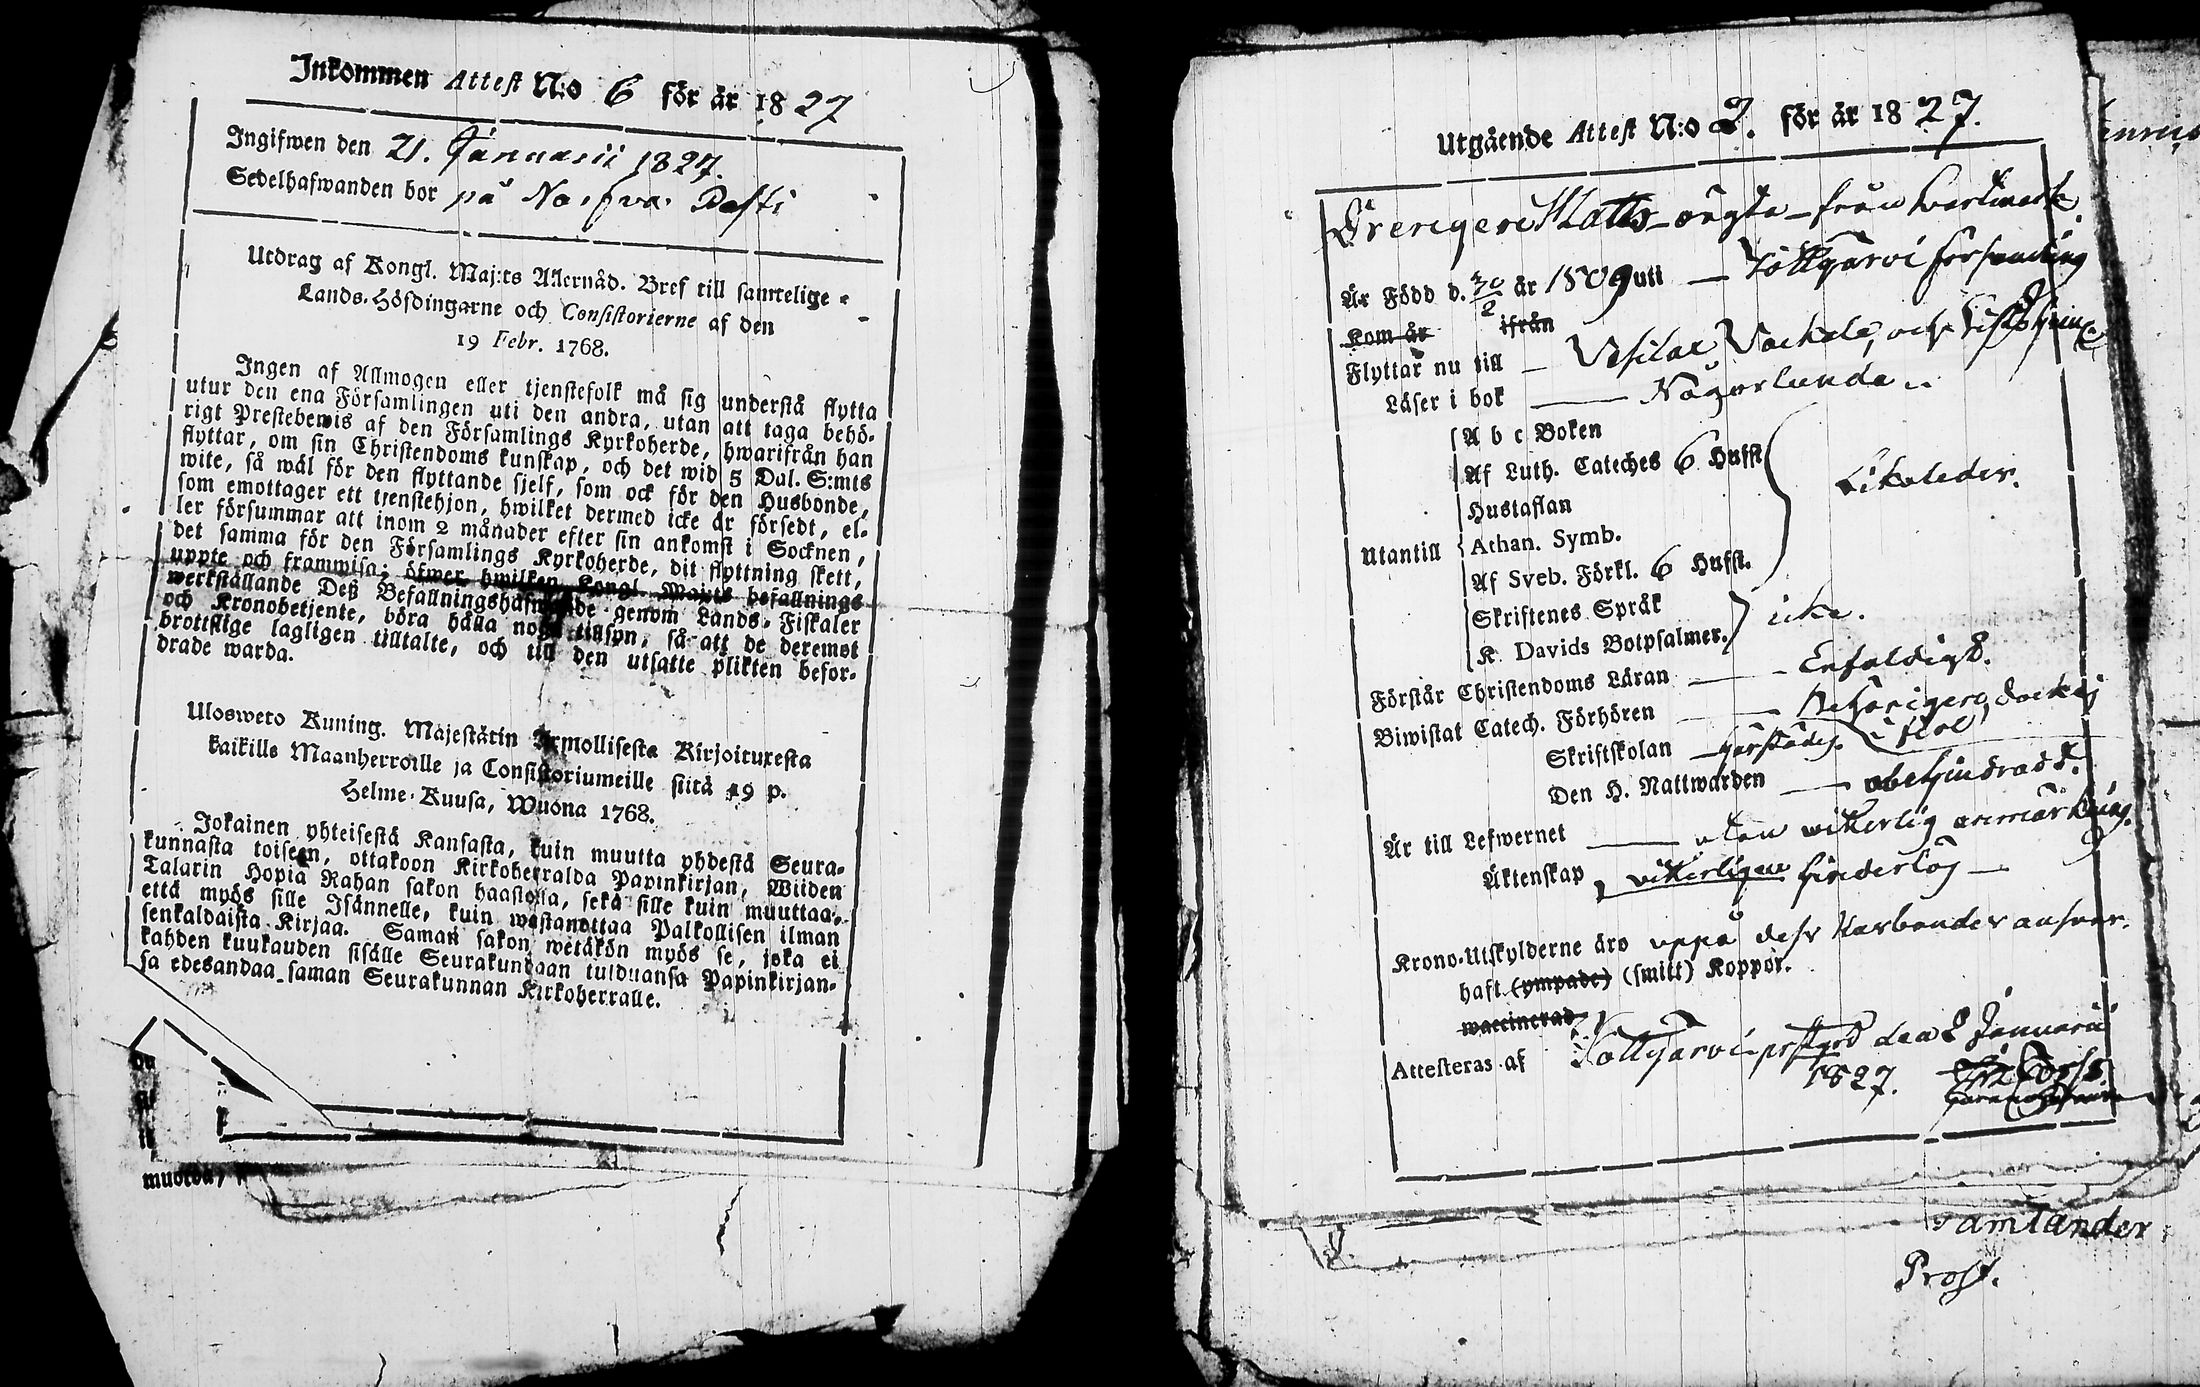 Inkommen Attest N:o 6 för år 1827
Ingifwen den 21. Januarii 1827.
Sedelhafwanden bor på
Utdrag af Kongl. Maj:ts Allernåd. Bref till samtelige
Lands-Höfdingarne och Consistorierne af den
19 Febr. 1768.
Ingen af Allmogen eller tjenstefolk må sig understå flytta
utur den ena Församlingen uti den andra, utan att taga behö-
rigt Prestebewis af den Församlings Kyrkoherde, hwarifrån han
flyttar, om sin Christendoms kunskap, och det wid 5 Dal. S:mts
wite, så wäl för den flyttande sjelf, som ock för den Husbonde,
som emottager ett tjenstehjon, hwilket dermed icke är försedt, el-
ler försummar att inom 2 månader efter sin ankomst i Socknen,
det samma för den Församlings Kyrkoherde, dit flyttning skett,
uppte och framwisa; öfwer hwilken Kongl. Maj:ts befallnings
werkställande Deß Befallningshafwande genom Lands-Fiskaler
och Kronobetjente, böra hålla noga tillsyn, så att de deremot
brottslige lagligen tilltalte, och till den utsatte plikten befor-
drade warda.
Ulosweto Kuning. Majestätin Armollisesta Kirjoituxesta
kaikille Maanherroille ja Consistoriumeille siitä 19 p.
Helme-Kuusa, Wuona 1768.
Jokainen yhteisestä Kansasta, kuin muutta yhdestä Seura-
kunnasta toiseen, ottakoon Kirkoherralda Papinkirjan, Wiiden
Talarin Hopia Rahan sakon haastolla, sekä sille kuin muuttaa,
että myös sille Isännelle, kuin wastanottaa Palkollisen ilman
senkaldaista Kirjaa. Saman sakon wetäkön myös se, joka ei
kahden kuukauden sisälle Seurakundaan tulduansa Papinkirjan-
sa edesandaa saman Seurakunnan Kirkoherralle.
muotoa,
Utgående Attest N:o 2. för år 1827.
Drengen Matts
Är Född d. 30/2 år 1809 uti församling
Kom år ifrån
Flyttar nu till
Läser i bok Någorlunda
A b c Boken
Af Luth. Cateches 6 Hufst
Hustaflan
Likaledes.
Utantill
Athan. Symb.
Af Sveb. Förkl. 6 Hufst.
Skriftenes Språk
K. Davids Botpsalmer. icke.
Förstår Christendoms Läran Enfaldigt.
Biwistat Catech. Förhören
Skriftskolan
Den H. Nattwarden obehindradt.
Är till Lefwernet utan witterlig anmärkning.
Äktenskap witterligen hinderlös
Krono-Utskylderne äro uppå dess Husbondes answar.
haft (ympade) (smitt) Koppor.
waccinerad
Attesteras af den 2 Januarii
1827.
Prost.